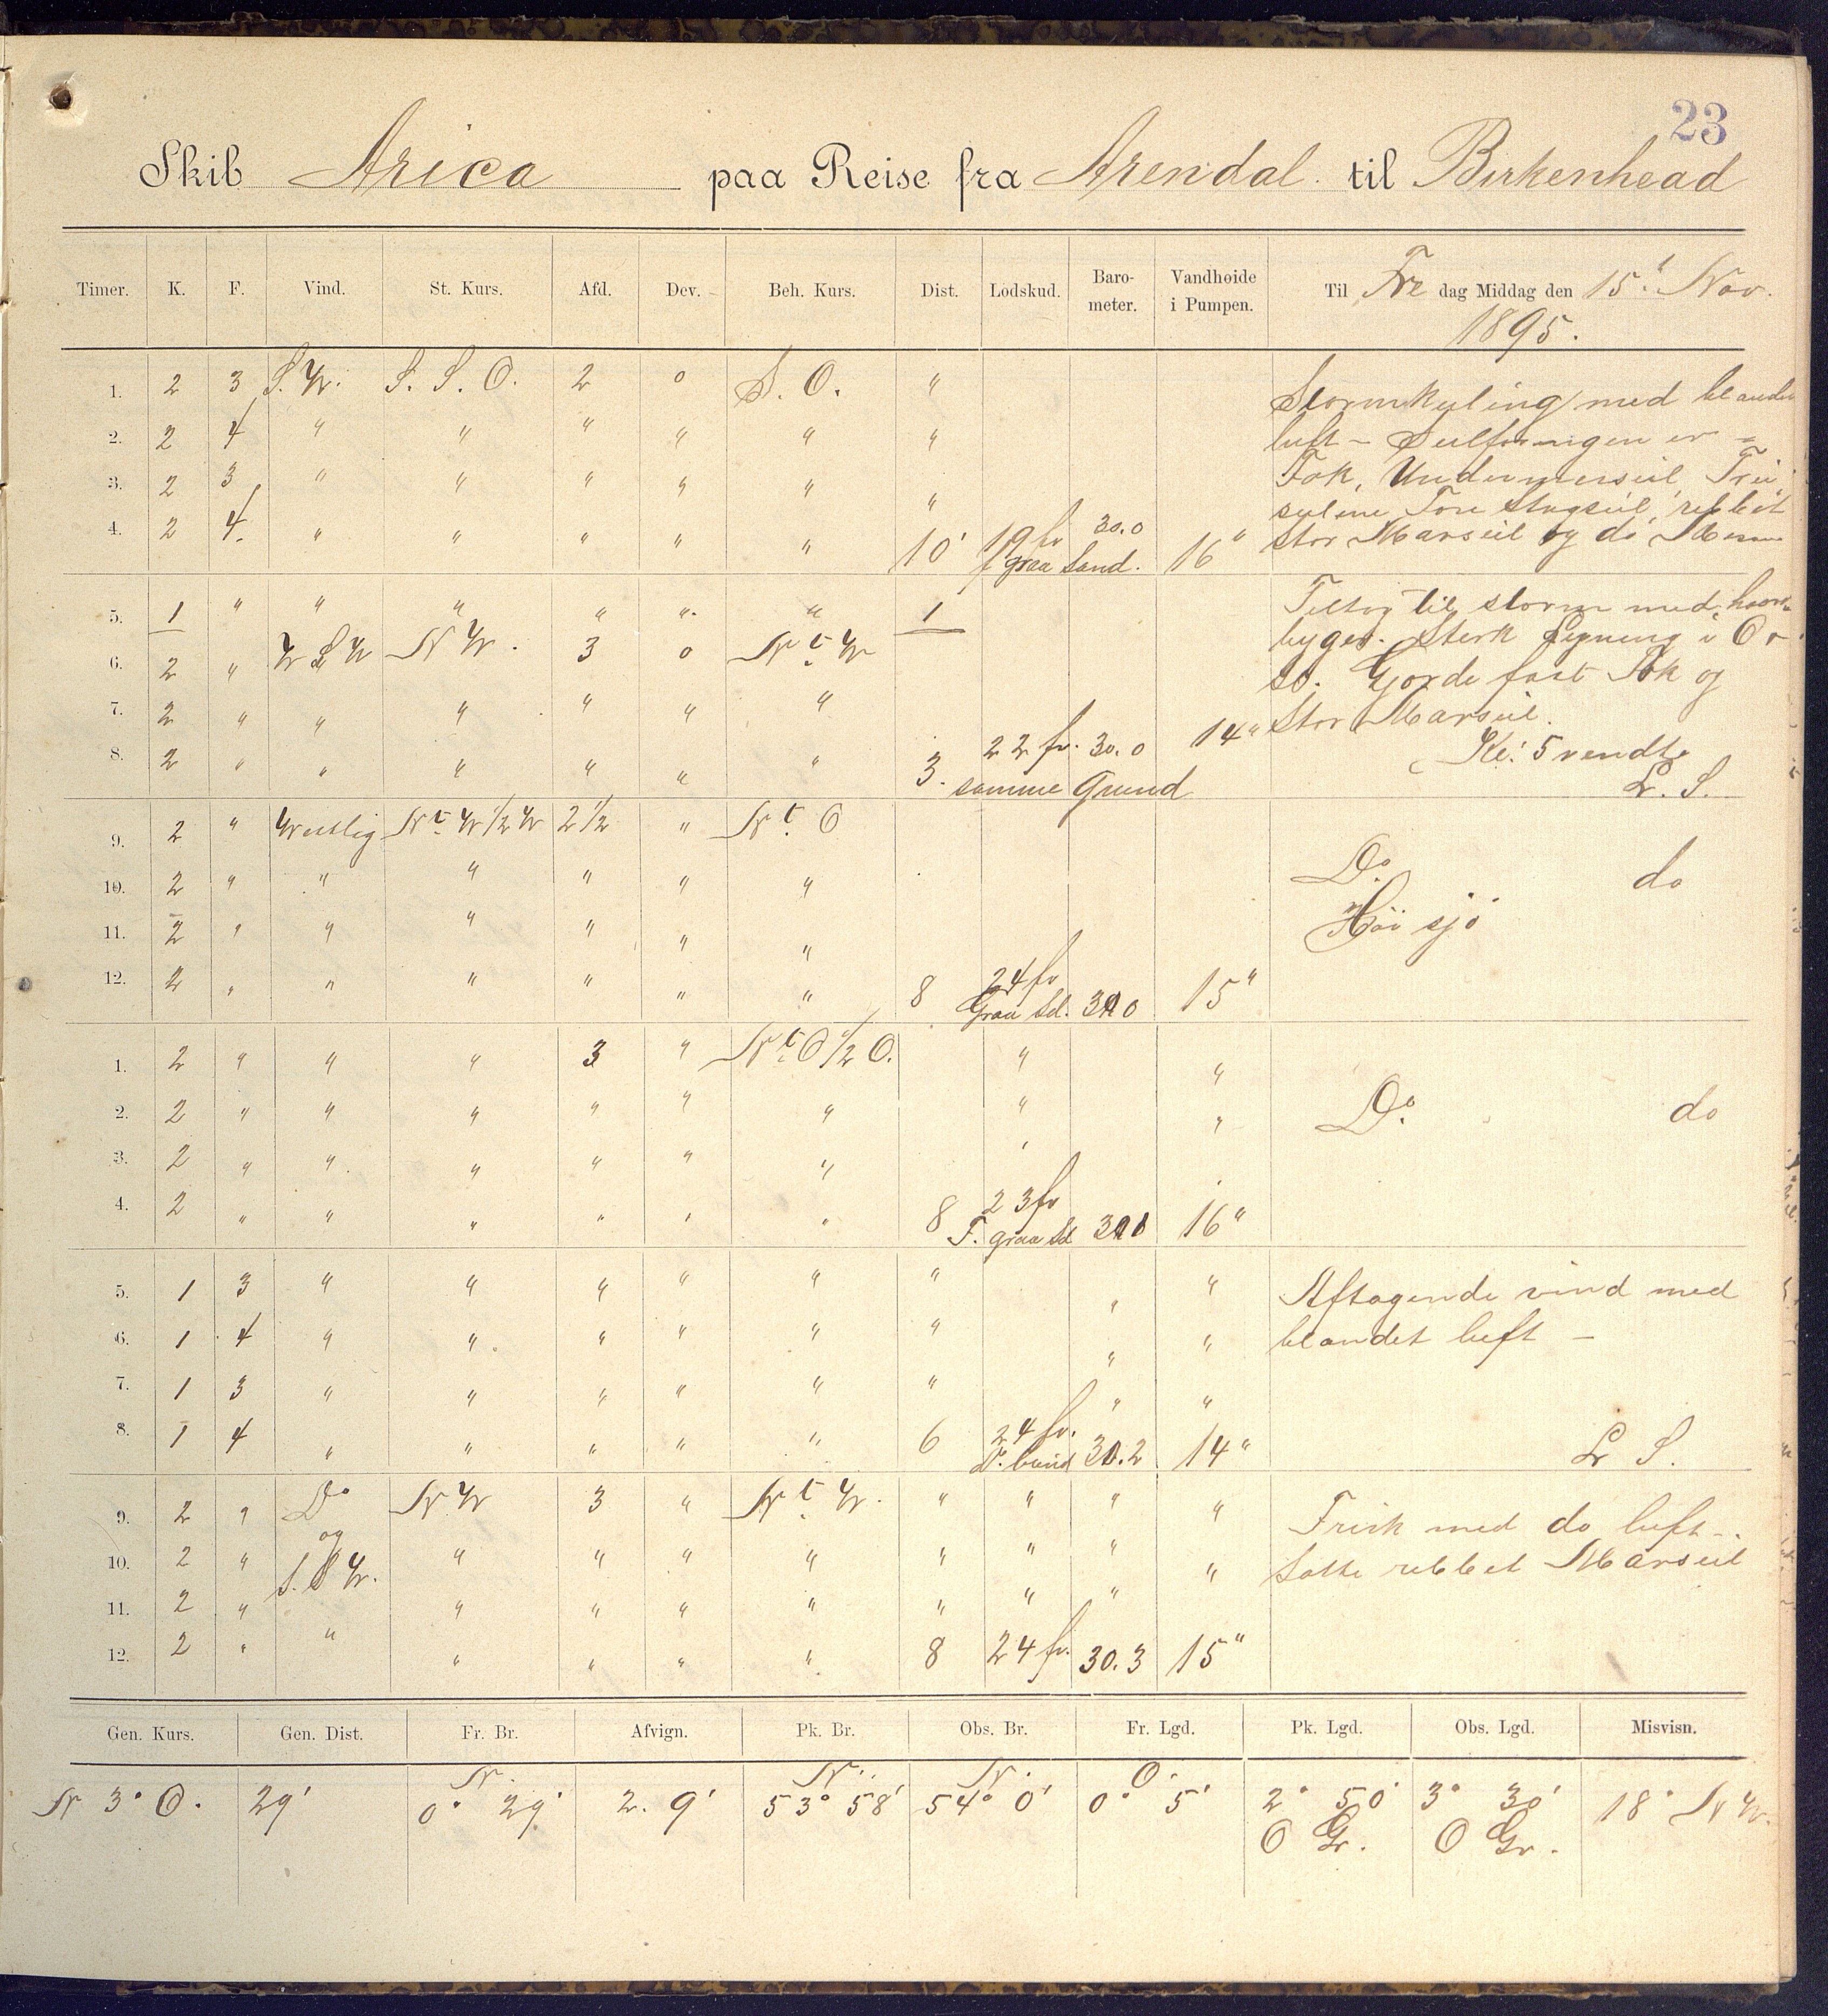 23
Skib Arica paa Reise fra Arendal til Birkenhead
Timer. K. F. Vind. St. Kurs. Afd. Dev. Beh. Kurs. Dist. Lodskud. Baro-meter. Vandhøide i Pumpen. Til Fredag Middag den 15' Nov. 1895.
1. 2 3 S.W. S. S. O. 2 0 S. O. " Stormkuling med blandet
2. 2 4 " " " " " " luft -
3. 2 3 " " " " " " Fok, Undermerseil
4. 2 4. " " " " " 10' 19 fv graa Sand. 30.0 16" stor Marseil og do
5. 1 " " " " " " 1 Tiltog til storm med
6. 2 " W S W N W. 3 0 N t. W byger. Sterk i O
7. 2 " " " " " " so. Gjorde fast Fok og
8. 2 " " " " " " 3. 22 fv. 30.0 14" Stor Marseil.
samme Grund Kl: 5 vendte
L. S.
9. 2 " Westlig N t. W 1/2 W 2 1/2 " N t. O
10. 2 " " " " " " Do. do
11. 2 " " " " " " Höi sjö
12. 2 " " " " " " 8 24 fv Graa Sd. 30.0 15"
1. 2 " " " 3 " N t. O 1/2 O. " "
2. 2 " " " " " " " " Do. do
3. 2 " " " " " " "
4. 2 " " " " " " 8 23 fv F. graa Sd 16"
5. 1 3 " " " " " " " " Aftagende vind med
6. 1 4 " " " " " " " " blandet luft -
7. 1 3 " " " " " " " "
8. 1 4 " " " " " 6 24 fv. 30.2 14" L S.
9. 2 " Do N W 3 " N t. W. " " " " Frisk med do luft -.
og
10. 2 " S. S W. " " " " " " " " Satte rebbet Marseil
11. 2 " " " " " " " "
12. 2 " " " " " " 8 24 fv. 30.3 15"
Gen. Kurs. Gen. Dist. Fr. Br. Afvign. Pk. Br. Obs. Br. Fr. Lgd. Pk. Lgd. Obs. Lgd. Misvisn.
N. N. N. O.
N 3° O. 29' 0° 29' 2. 9' 53° 58' 54° 0' 0° 5' 2° 50' 3° 30' 18° N W.
O Gr. O Gr.